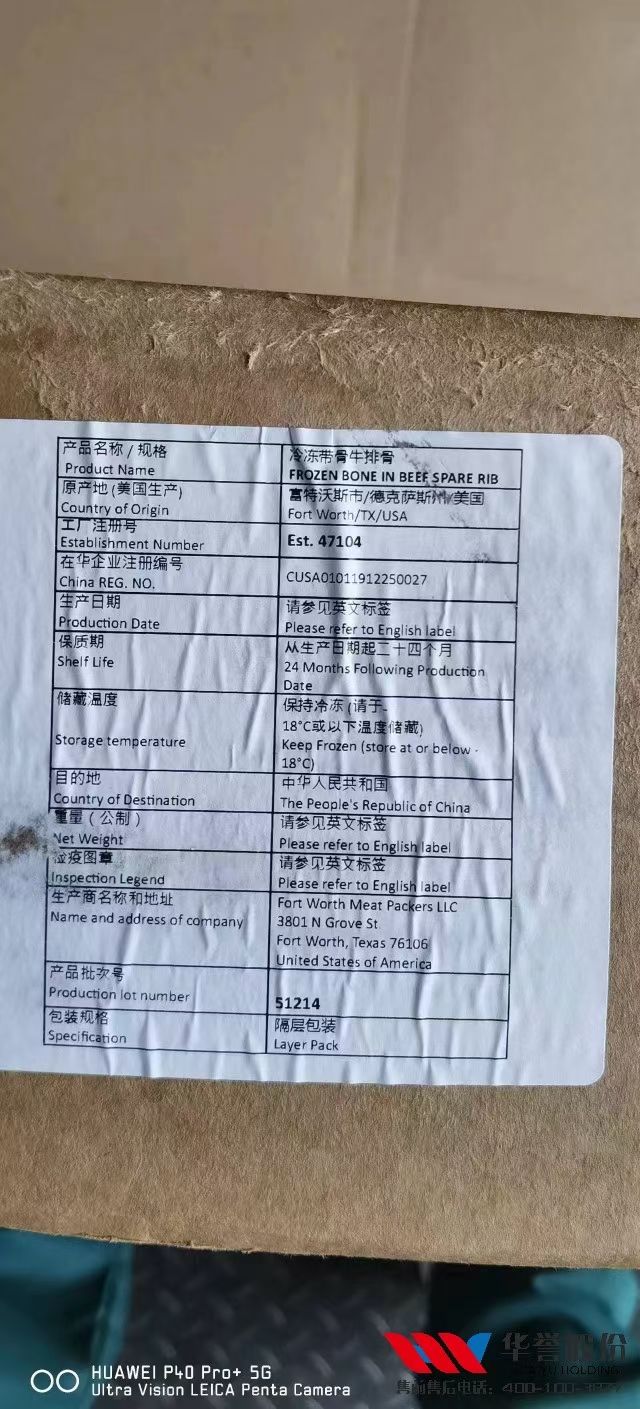 产品名称 / 规格
Product Name
冷冻带骨牛排骨
FROZEN BONE IN BEEF SPARE RIB
原产地 (美国生产)
Country of Origin
富特沃斯市/德克萨斯州/美国
Fort Worth/TX/USA
工厂注册号
Establishment Number
Est. 47104
在华企业注册编号
China REG. NO.
CUSA01011912250027
生产日期
Production Date
请参见英文标签
Please refer to English label
保质期
Shelf Life
从生产日期起二十四个月
24 Months Following Production
Date
储藏温度
Storage temperature
保持冷冻 (请于-
18°C或以下温度储藏)
Keep Frozen (store at or below -
18°C)
目的地
Country of Destination
中华人民共和国
The People's Republic of China
重量 (公制)
Net Weight
请参见英文标签
Please refer to English label
检疫图章
Inspection Legend
请参见英文标签
Please refer to English label
生产商名称和地址
Name and address of company
Fort Worth Meat Packers LLC
3801 N Grove St
Fort Worth, Texas 76106
United States of America
产品批次号
Production lot number
51214
包装规格
Specification
隔层包装
Layer Pack
华誉股份
HOLDING
售前售后电话:400-100-
HUAWEI P40 Pro+ 5G
Ultra Vision LEICA Penta Camera